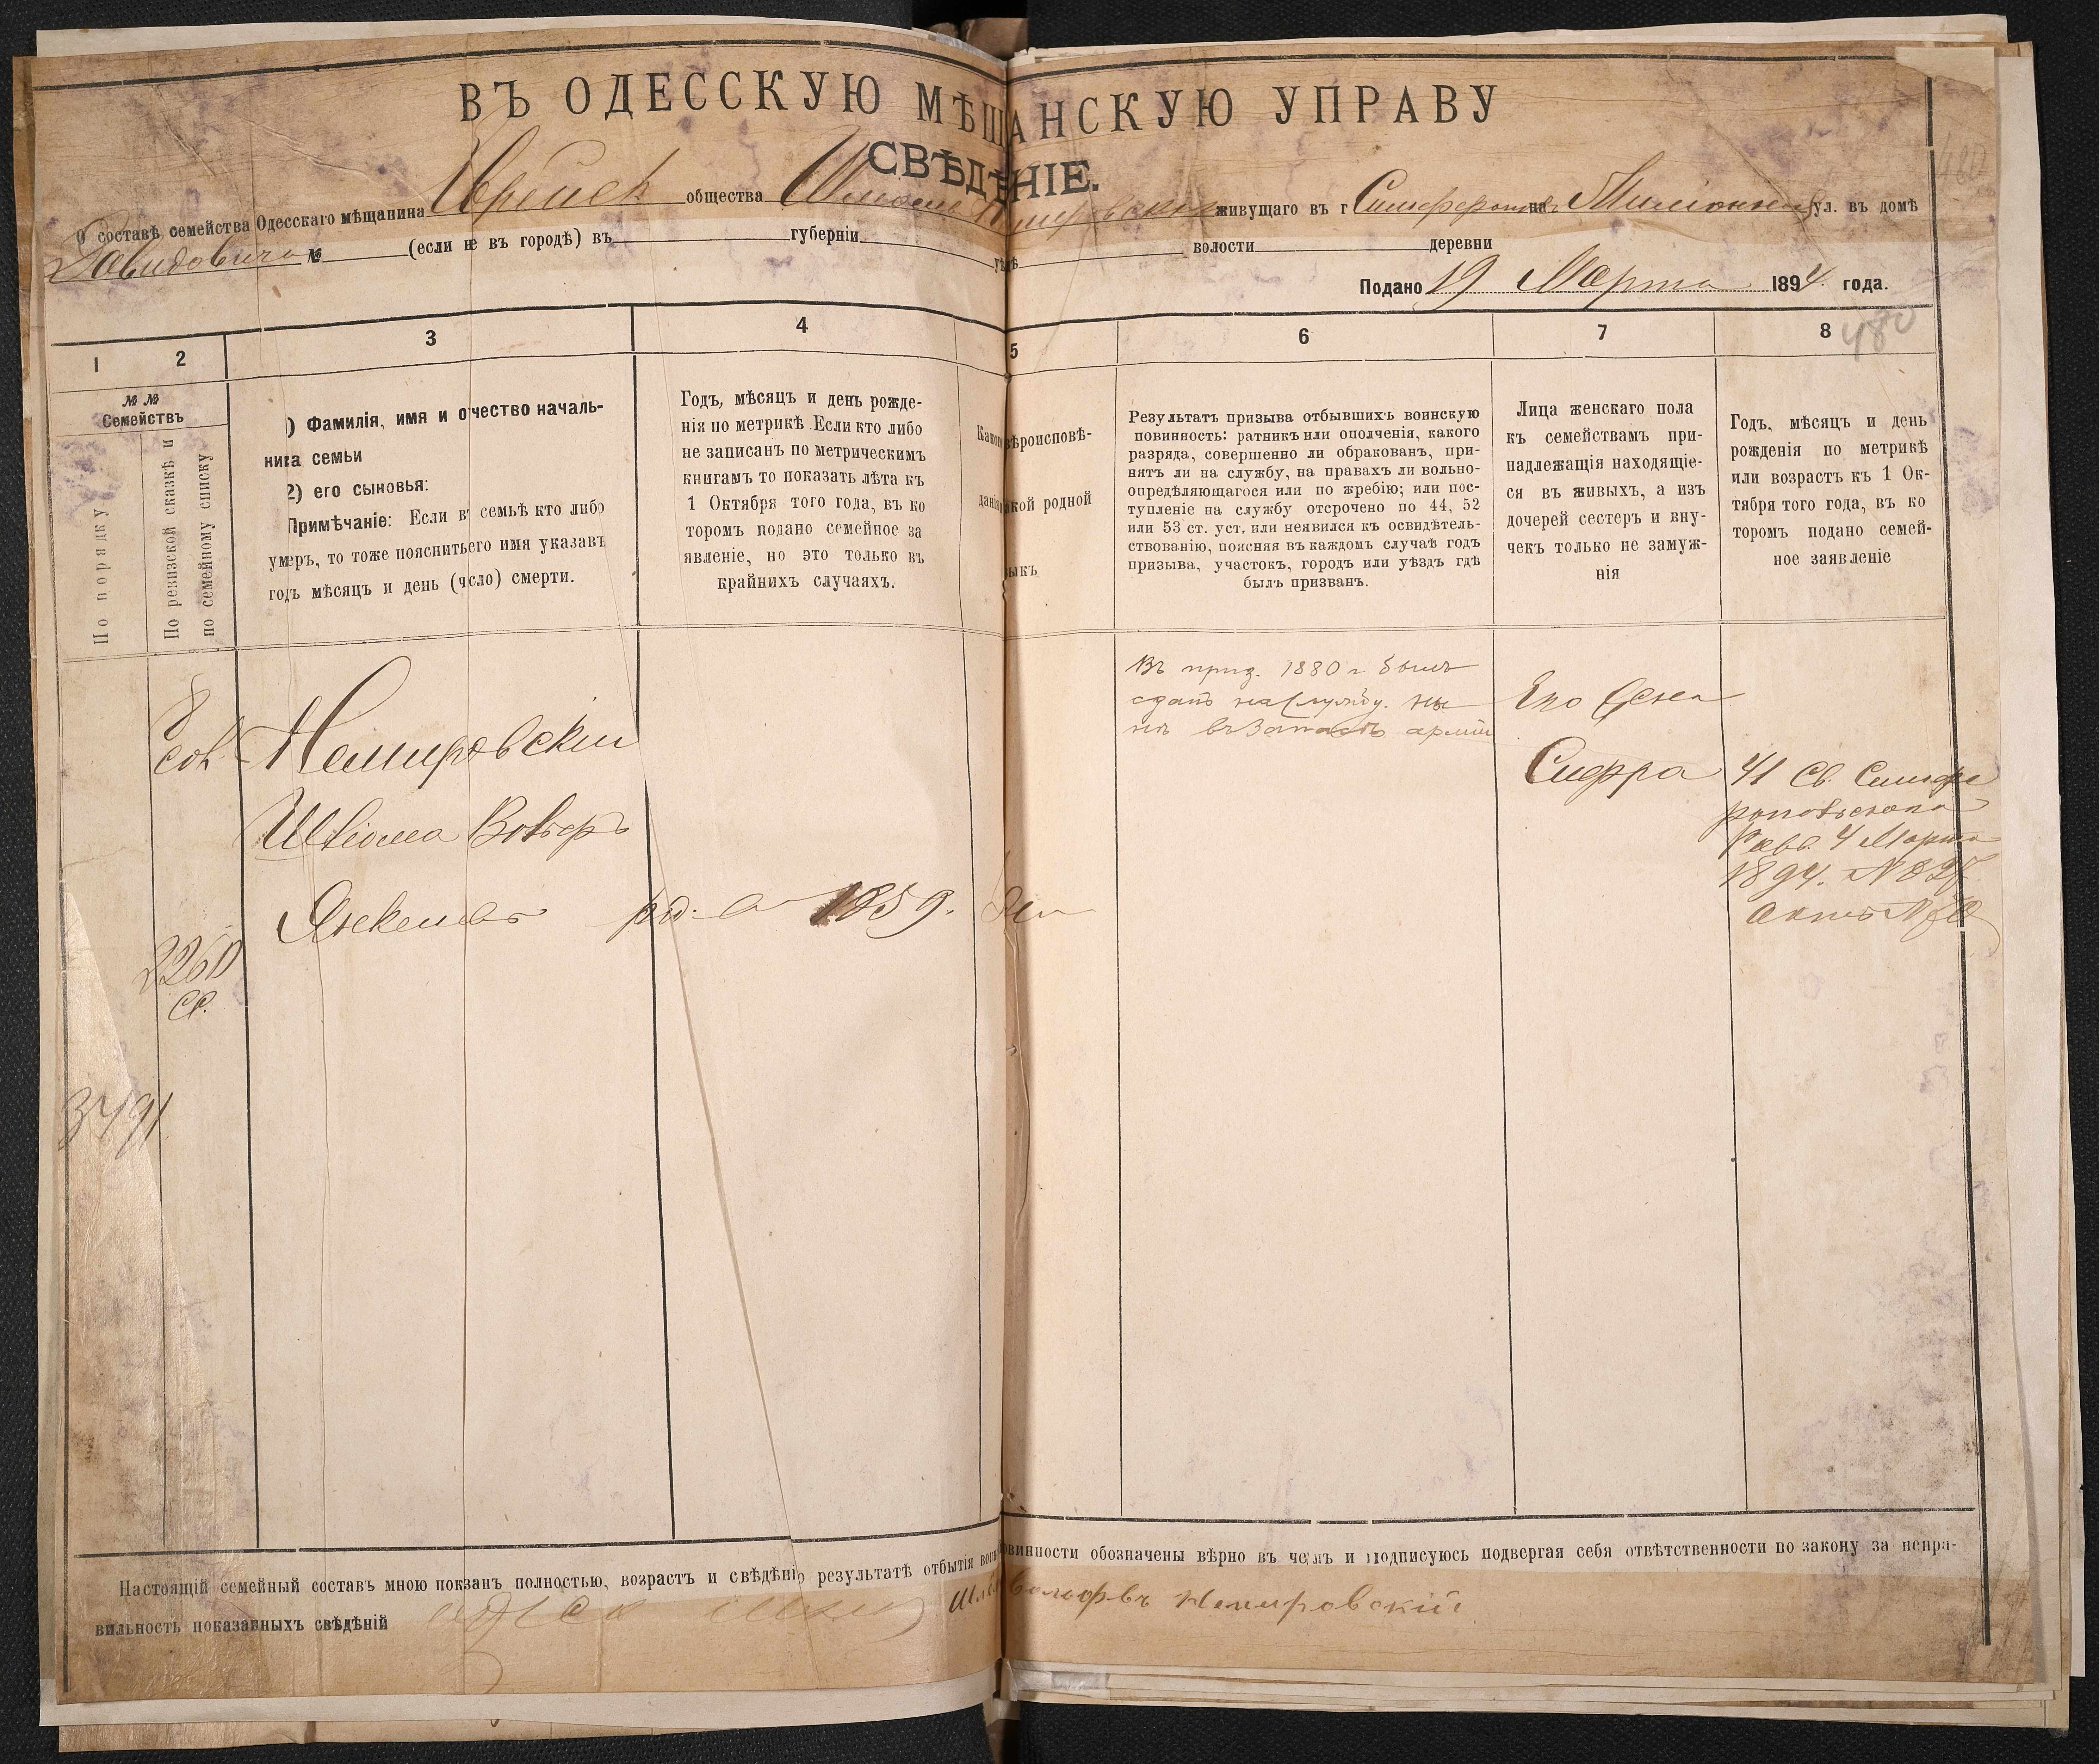 ВЪ ОДЕССКУЮ МѢЩАНСКУЮ УПРАВУ
СВѢДѢНІЕ.
О составѣ семейства Одесскаго мѣщанина Еврейск общества живущаго въ г на ул. въ домѣ
Давидовича № (если не въ городѣ) въ губерніи уѣздѣ волости деревни
Подано 19 Марта 1894 года.
480
1 2 3 4 5 6 7 8
№ № Семействъ
По порядку
По ревизской сказкѣ и
по семейному списку
1) Фамилія, имя и отчество началь-
ника семьи
2) его сыновья:
Примѣчаніе: Если въ семьѣ кто либо
умеръ, то тоже пояснить его имя указавъ
годъ мѣсяцъ и день (число) смерти.
Годъ, мѣсяцъ и день рожде-
нія по метрикѣ. Если кто либо
не записанъ по метрическимъ
книгамъ то показать лѣта къ
1 Октября того года, въ ко
торомъ подано семейное за
явленіе, но это только въ
крайнихъ случаяхъ.
Какого вѣроисповѣ-
данія какой родной
зыкъ
Результатъ призыва отбывшихъ воинскую
повинность: ратникъ или ополченія, какого
разряда, совершенно ли обракованъ, при-
нятъ ли на службу, на правахъ ли вольно-
опредѣляющагося или по жребію; или пос-
тупленіе на службу отсрочено по 44, 52
или 53 ст. уст. или неявился къ освидѣтель-
ствованію, поясняя въ каждомъ случаѣ годъ
призыва, участокъ, городъ или уѣздъ гдѣ
былъ призванъ.
Лица женскаго пола
къ семействамъ при-
надлежащія находящіе-
ся въ живыхъ, а изъ
дочерей сестеръ и вну-
чекъ только не замуж-
нія
Годъ, мѣсяцъ и день
рожденія по метрикѣ
или возрастъ къ 1 Ок-
тября того года, въ ко
торомъ подано семей-
ное заявленіе
Немировскій
Вольфъ
р. 1859.
2260
3491
Въ приз. 1880 г былъ
сданъ на службу. ны
нѣ въ Запасѣ арміи
Его жена
Сифра
41 Св. Симфе
ропольскаго
Равв. 4 Марта
1894. №
Настоящій семейный составъ мною показанъ полностью, возрастъ и свѣдѣнія результатѣ отбытія воинской повинности обозначены вѣрно въ чемъ и подписуюсь подвергая себя отвѣтственности по закону за непра-
вильность показанныхъ свѣдѣній Немировскій